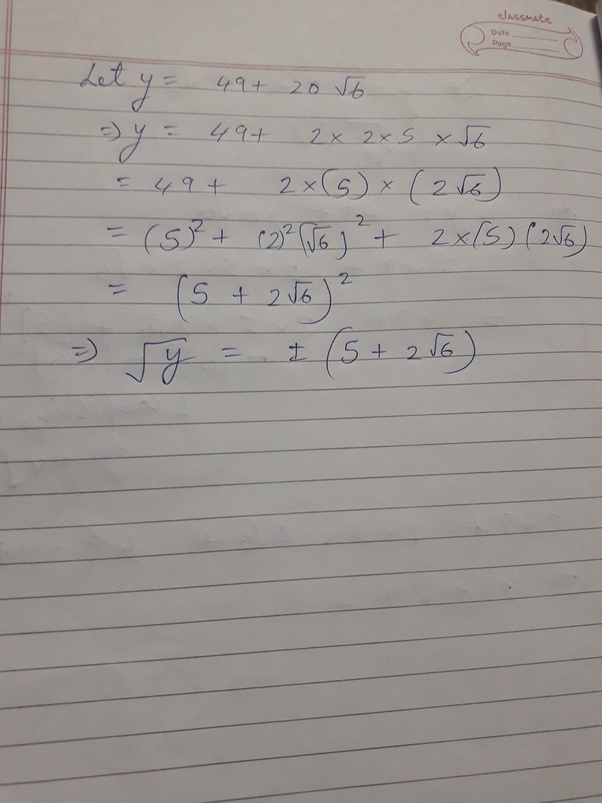 classmate
Date
Page
Let y = 49 + 20 √6
⇒ y = 49 + 2 × 2 × 5 × √6
= 49 + 2 × (5) × (2 √6)
= (5)² + (2)² (√6)² + 2 × (5) (2√6)
= (5 + 2√6)²
⇒ √y = ± (5 + 2√6)